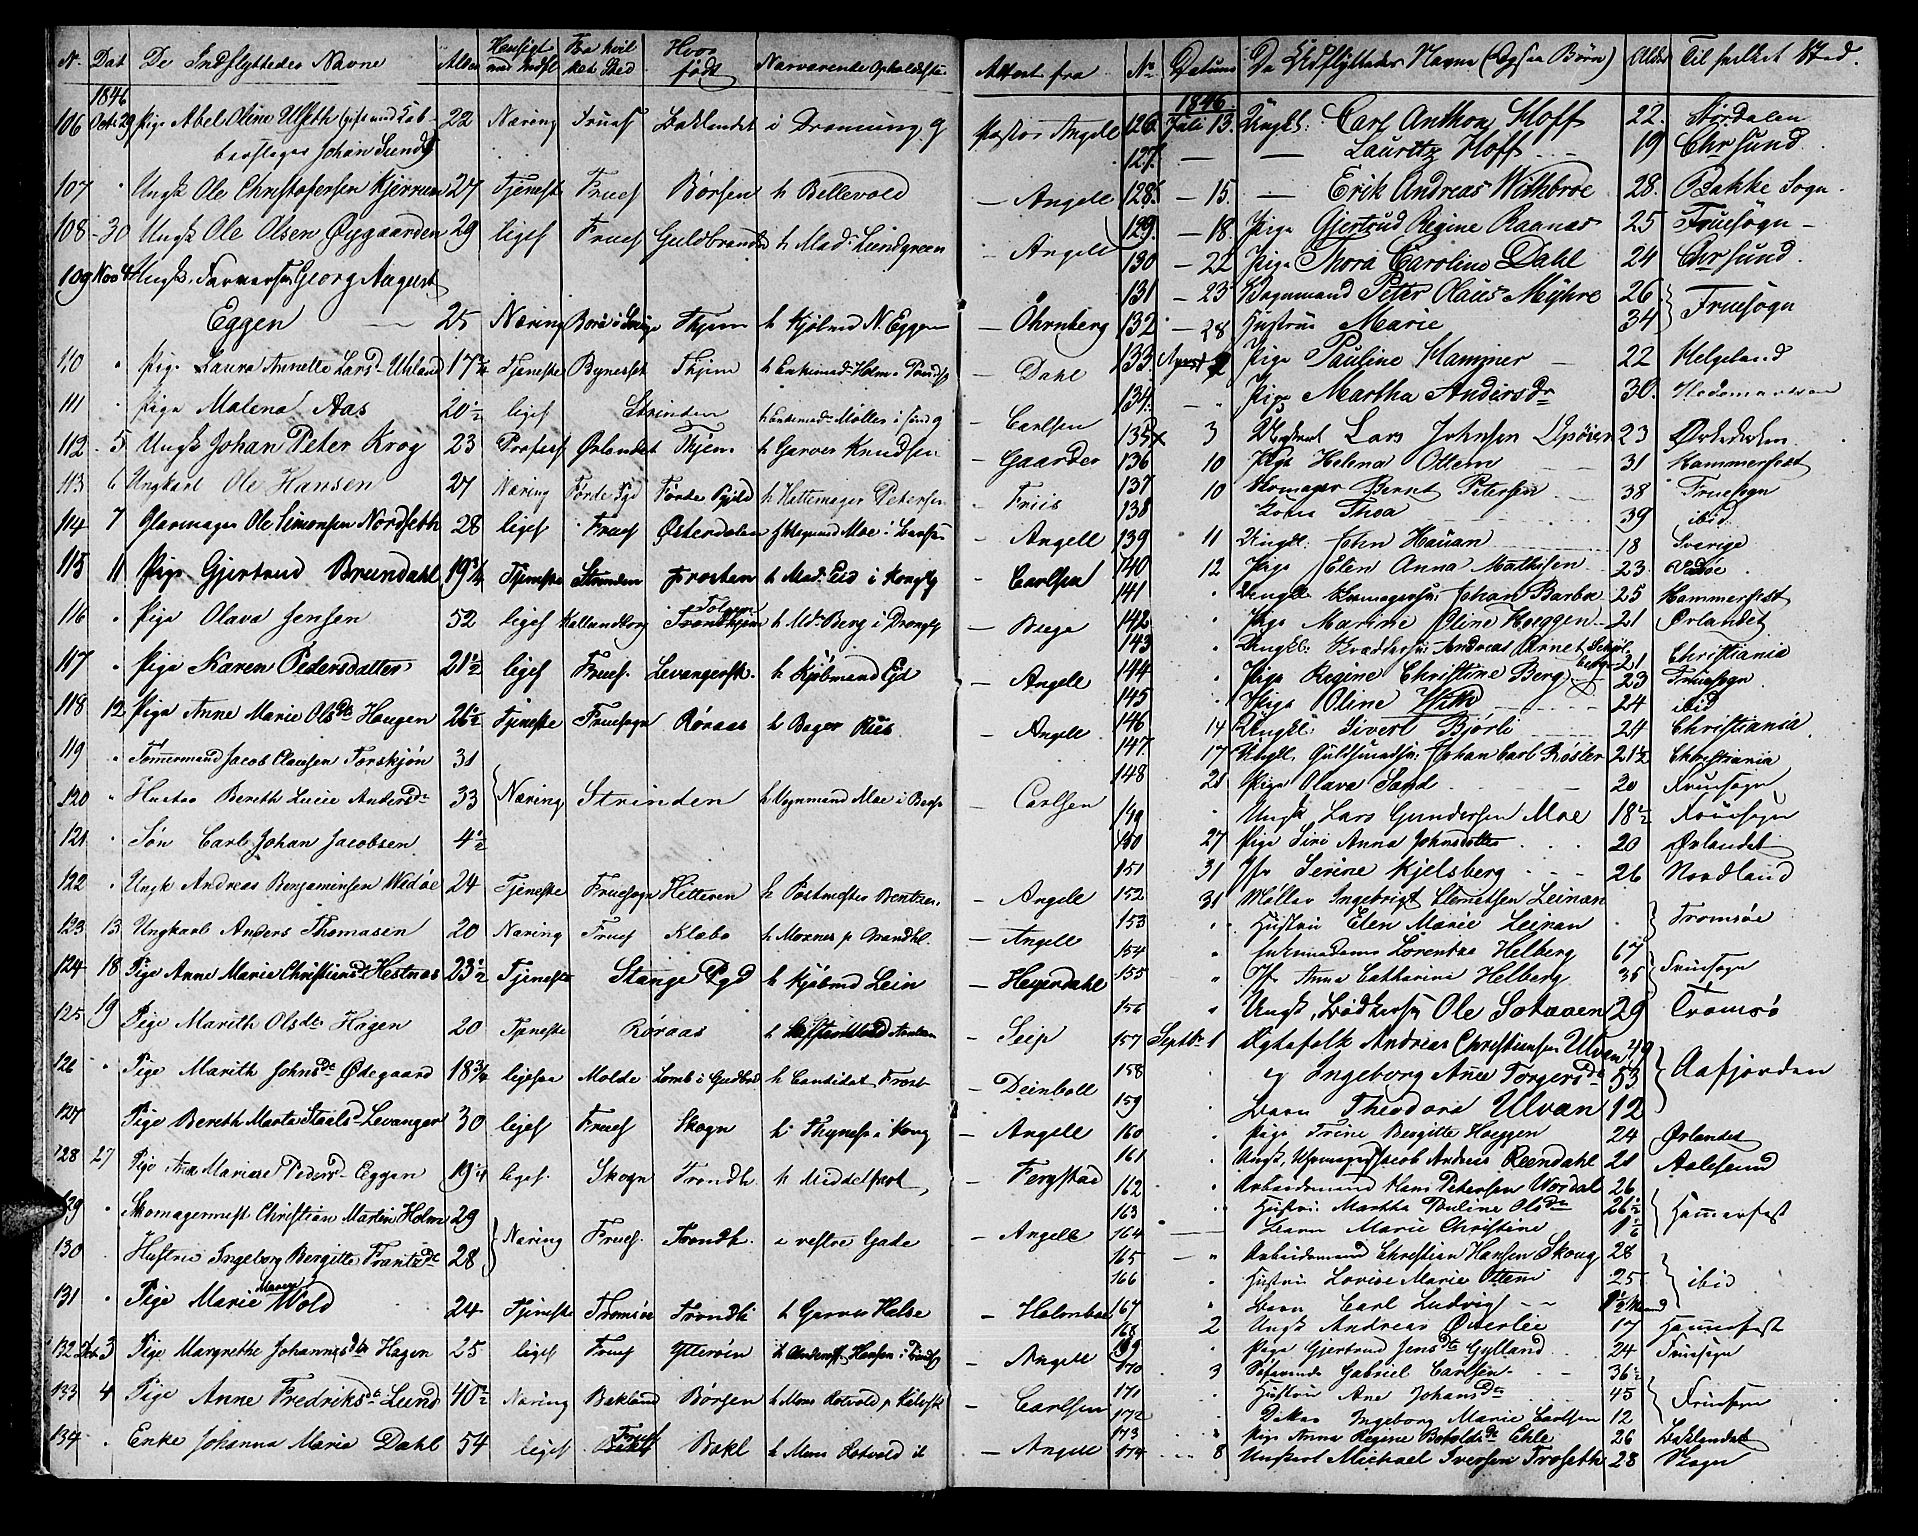 N. Dat De Indflyttedes Navne Alder Hensigt med Indfl. Fra hvilket Sted Hvor født Nærværende Opholdssted Attest fra
1846
106 Oct. 29 Pige Abel Oline Ulseth (gift med 22 Næring Fruef Baklandet i Dronning. g Pastor Angell
Johan Lund
107 " Ungk Ole Christofersen Kjerrum 27 Tjeneste Fruef Børsen h Bellevold — Angell
108 - 30 Ungk Ole Olsen Øygaarden 29 ligef Fruef h Mad. Lundgreen — Angell
109 Nov 4 Ungk. Georg August
Eggen 25 Næring Thjem h Kjøbmd N. Eggen — Öhrnberg
110 " Pige Laura Annette Larsd. Uhland 17½ Tjeneste Bynesset Thjem — Dahl
111 " Pige Malena Aas 20½ ligef Strinden — Carlsen
112 - 5 Ungk Johan Peter Krog 23 Profess Ørlandet Thjem h Garver Knudsen — Gaarder
113 6 Ungkarl Ole Hansen 27 Næring Førde Pgd Førde Pgjld h Hattemager Petersen — Friis
114 7 Glarmager Ole Simonsen Nordseth 28 ligef Fruef Østerdalen — Angell
115 11 Pige Gjertrud Brundahl 19¾ Tjeneste Strinden Frosten h Mad. Eid i Kongsg — Carlsen
116 " Pige Olava Jensen 52 ligef Kallundborg Trondhjem h Md. Berg i Drongg
117 " Pige Karen Pedersdatter 21½ ligef Fruef. Levangersk. h Kjøbmand Eid — Angell
118 12 Pige Anne Marie Olsdtr Haugen 26½ Tjeneste Fruesogn Røraas h Bager Riis — Angell
119 " Tømmermand Jacob Clausen Forskjøn 31
120 " Hustro Bereth Lucie Andersdr 33 Næring Strinden h Vognmand Moe i — Carlsen
121 " Søn Carl Johan Jacobsen 4½
122 " Ungk Andreas Benjaminsen Wedøe 24 Tjeneste Fruesogn Hitteren h Postmester Bentzen. — Angell
123 13 Ungkarl Anders Thomasen 20 Næring Fruef Klæbo — Angell
124 18 Pige Anne Marie Christiansd. Hestnæs 23½ Tjeneste Stange Pgd h Kjøbmd Lein — Heyerdahl
125 19 Pige Marith Olsdr Hagen 20 Tjeneste Røraas — Seip
126 " Pige Marith Johnsdr Ødegaard 18¾ ligesaa Molde Lomb i Gudbrd h Candidat Frost — Deinboll
127 Pige Bereth Marta Staals-Levanger 30 ligef Fruef Skogn — Angell
128 27 Pige Ane Mariane Pedersd Eggen 19¼ ligef. Skogn Trondh. h Middelfart — Fergstad
129 " Skomagermest Christian Martin Holm 29
130 Hustrue Ingeborg Bergitte Frantzdr 28 Næring Fruef. Trondh. i vestre Gade — Angell
131 " Pige Marie Wold 24 Tjeneste Tromsøe Trondh h Garver Halse — Holmboe
132 Dcb. 3 Pige Margrethe Johannesdtr Hagen 25 ligef Fruef Ytterøen — Angell
133 4 Pige Anne Fredriksdr Lund 40½ Næring Bakland Børsen — Carlsen
134 " Enke Johanna Maria Dahl 54 ligef Fruef Bakl — Angell
No Datum De Udflyttedes Navne (Ogsaa Børn) Alder Til hvilket Sted.
1846
126. Juli 13. Ungkl: Carl Anthon Hoff 22. Størdalen
127. — — Lauritz Hoff 19 Chrsund
128. - 15. — Erik Andreas Withbroe 28. Bakke Sogn
129. - 18. Pige Gjertrud Regine Raanas 25 Fruesogn
130 - 22 Pige Thora Caroline Dahl 24 Chrsund.
131 - 23 Bogemand Peter Olaus Myhre 26 Fruesogn
132 - 28 Hustrue Marie 34
133. August 2 Pige Pauline Hammer 22 Helgeland
134. - " Pige Martha Andersdr 30. Hedemarken
135 x 3 Lars Johnsen 23 Ørkedalen.
136 10 Pige Helena Ottem 31 Hammerfest
137 10 Bernt Petersen 38 Fruesogn
138 Kone Thea 39 ibid
139 11 Ungkl: John Hauan 18 Sverige
140 12 Pige Elen Anna Mathisen 23 Vedøe
141 " Ungkl Johan Barboe 25 Hammerfest
142 " Pige Marine Oline Hoeggen 21 Ørlandet
143 " Ungkl: Skræddersv: Andreas Ernst 21 Christiania
144 " Pige Regine Christine Berg 23 Fruesogn
145 " Pige Oline 24 ibid
146 14 Ungkl: Sivert Bjørli 24 Christiania.
147. 17 Ungkl. Guldsmedsv: Johan Carl Røsler 21½ Christiania
148 21 Pige Olava Sand 20 Fruesogn
149 " Ungk Lars Gundersen Moe 18½ Fruesogn
150 27 Pige Siri Anna Johnsdatter 20 Ørlandet
151 31 Jfr Serine Kjelsberg 26 Nordland
152 31 Møller Ingebrigt Clemetsen Leinan Tromsøe
153 " Hustru Elen Marie Leinan
154 " Lorentze Helberg 67 Fruesogn
155 " Jfr Anna Catharina Helberg 35
156 " Ungk. Bødkersv Ole Sohaaen 29 Tromsø
157 Septbr 1 Ægtefolk Andreas Christiansen Ulvan 49 Aafjorden
158 og Ingeborg Ane Torgersdr 53
159 " Barn Theodora Ulvan 12
160 " Pige Trine Bergitte Hoeggen 24 Ørlandet
161 " Ungk. Jacob Andreas Reendahl 21 Aalesund
162 " Arbeidsmand Hans Petersen Wordal 26 Hamerfest
163 " Hustru: Martha Pauline Olsdr 26½
164 — Barn Marie Christine
165 — " Arbeidsmand Christian Hansen Skoug 28 ibid
166 " Hustru Lovise Marie Ottem 25
167 " Barn Carl Ludvig
168 2 Ungk Andreas Øverlie 17 Hamerfest
169 " Pige Gjertrud Jensdtr Gylland 24 Fruesogn
170 3 Søfarende Gabriel Carlsen 36½ Fruesogn
171 " Hustru Ane Johansdr 45
172 Datter Ingeborg Marie Carlsen 12
173 " Pige Anna Regine 26 Baklandet
174 8 Ungkarl Michael Iversen Troseth 28 Skogn